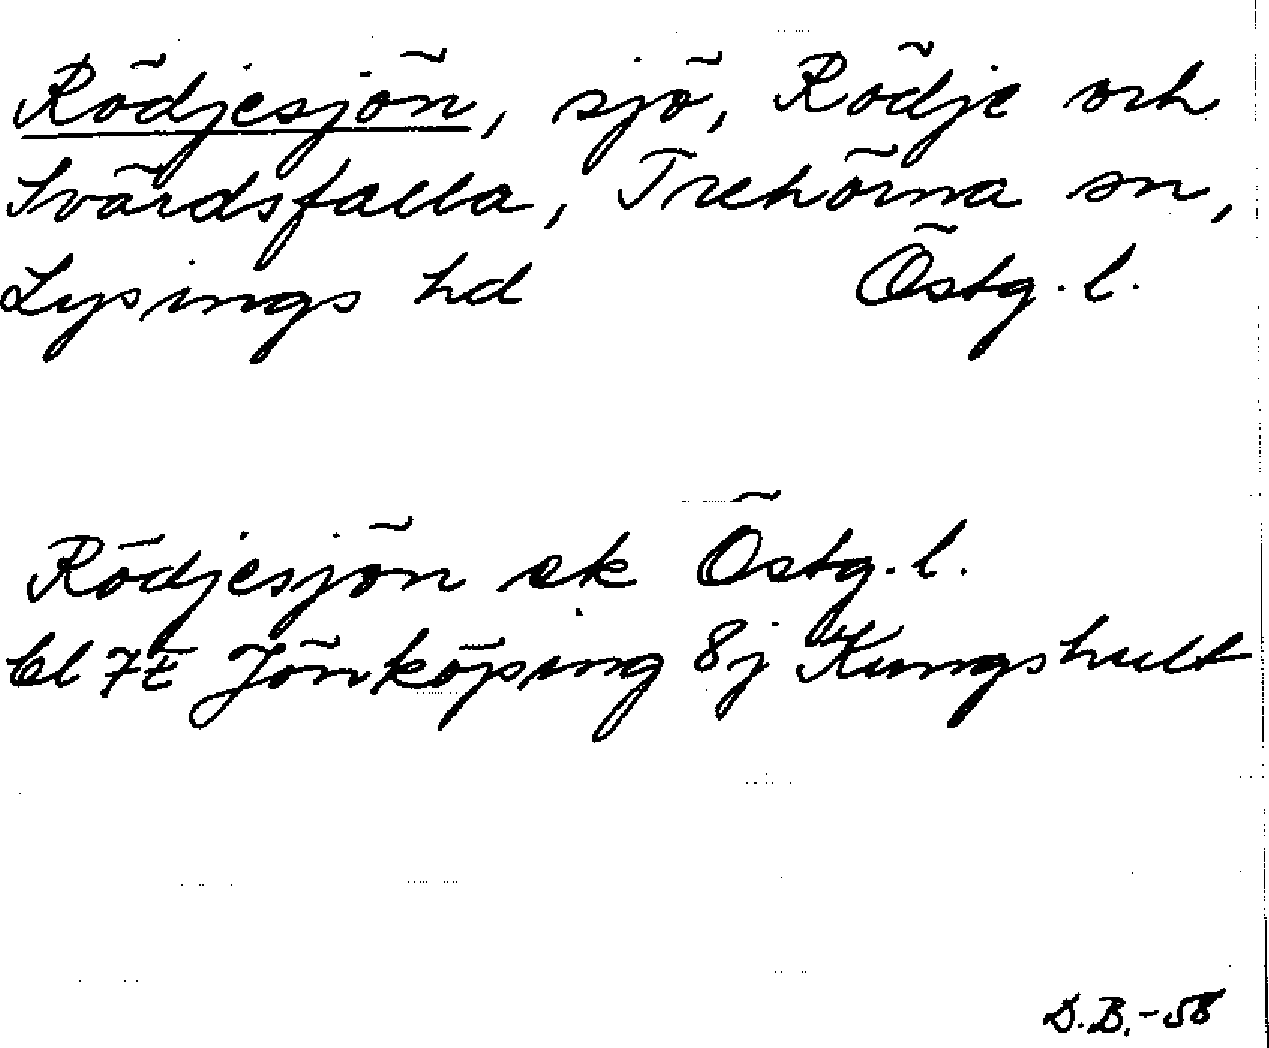 Rödjesjön, sjö, Rödje och
Svärdsfalla, Trehörna sn,
Lysings hd Östg. l.
Rödjesjön ek Östg. l.
bl 7E Jönköping 8j Kungshult
D.B. -58